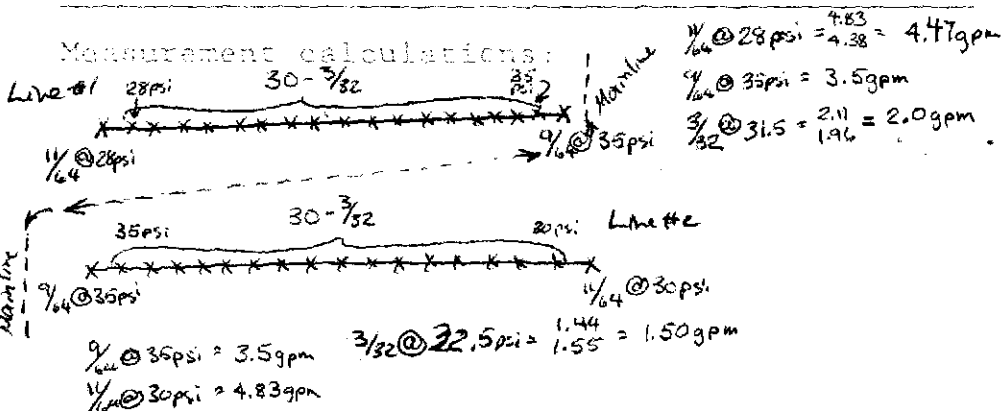 Measurement calculations:
Line #1 28psi 30 - 3/32 35 psi Mainline
11/64 @ 28psi 9/64 @ 35psi
11/64 @ 28psi = 4.83 4.38 = 4.47gpm
9/64 @ 35psi = 3.5gpm
3/32 @ 31.5 = 2.11 1.96 = 2.0gpm
Mainline 35psi 30 - 3/32 Line #2
9/64 @ 35psi 11/64 @ 30psi
9/64 @ 35psi = 3.5gpm 3/32 @ 22.5psi = 1.44 1.55 = 1.50gpm
11/64 @ 30psi = 4.83gpm